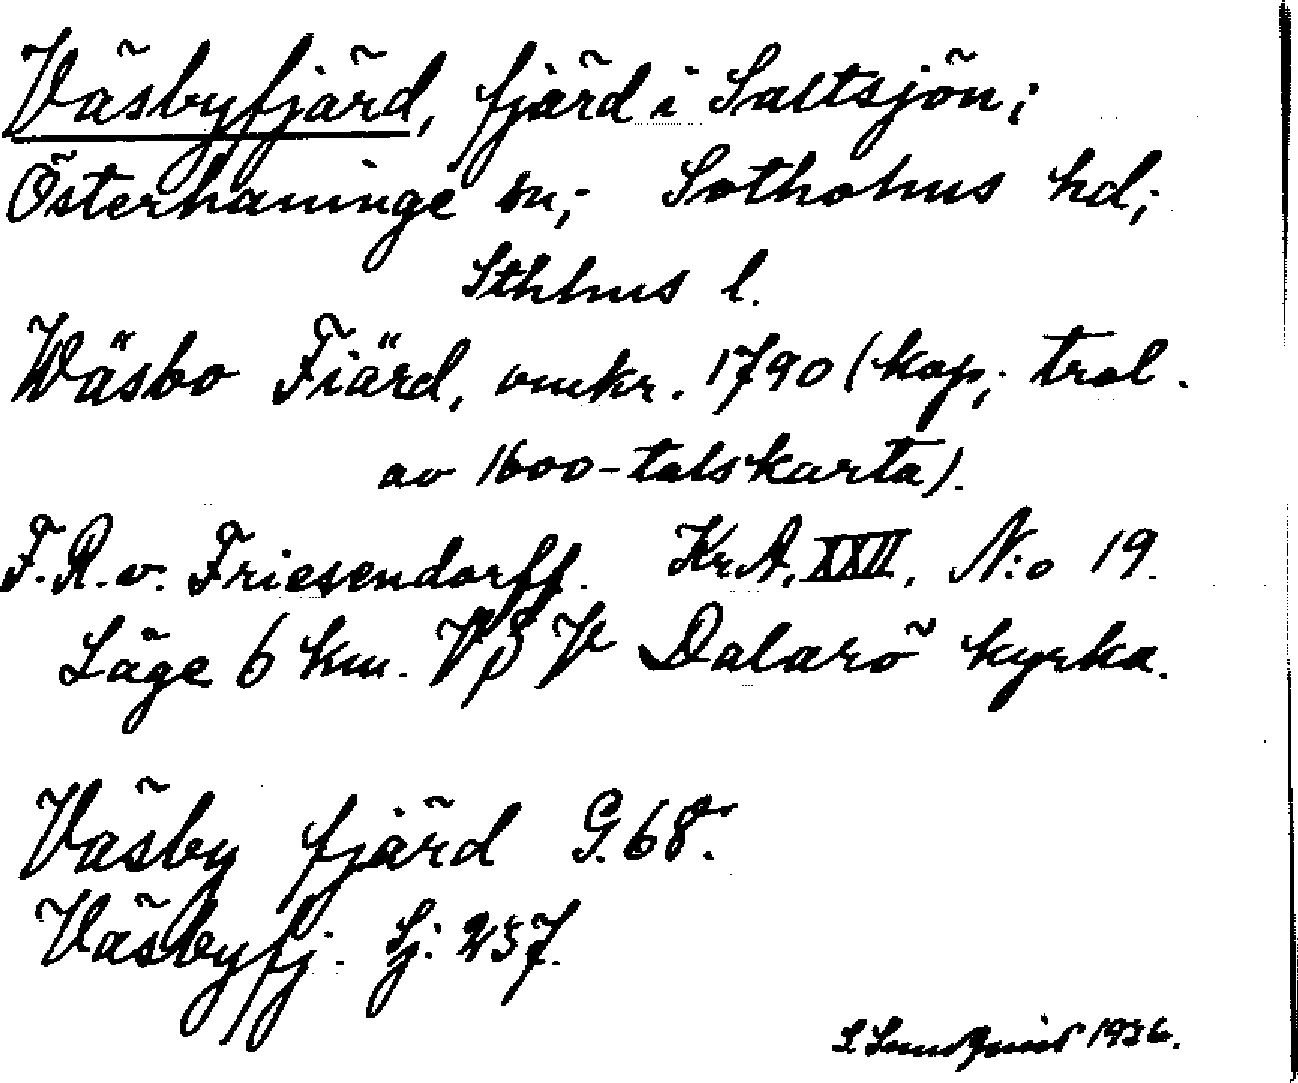 Väsbyfjärd, fjärd i Saltsjön;
Österhaninge sn; Sotholms hd;
Sthlms l.
Wäsbo Fiärd, omkr. 1790 (kop; trol.
av 1600-talskarta).
F.R.v. Friesendorff. KrA, XXII, N:o 19.
Läge 6 km. VSV Dalarö kyrka.
Väsby fjärd G.68.
Väsbyfj. Sj: 257.
1936.